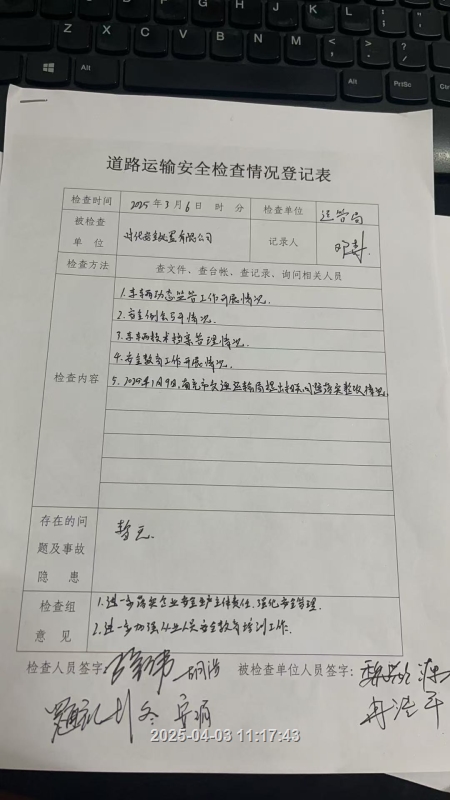 道路运输安全检查情况登记表
检查时间 2025年3月6日 时 分 检查单位 运管局
被检查单位 有限公司 记录人
检查方法 查文件、查台帐、查记录、询问相关人员
检查内容
1.车辆动态监管工作开展情况.
2.安全例会召开情况.
3.车辆技术档案管理情况.
4.安全教育工作开展情况.
5.2025年1月9日,南充市交通运输局提出相关问题落实整改情况.
存在的问题及事故隐患 暂无.
检查组意见
1.进一步落实企业安全生产主体责任,强化安全管理.
2.进一步加强从业人员安全教育培训工作.
检查人员签字: 被检查单位人员签字:
2025-04-03 11:17:43
Z X C V B N M
Alt Alt PrtSc Ctrl